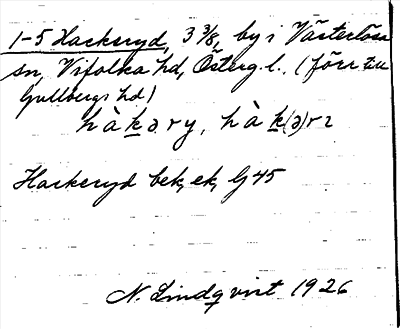 1-5 Hackeryd, 3 3/8, by i Västerlösa
sn, Vifolka hd, Österg. l. (förr till
Gullbergs hd)
hàkəry, hàk(ə)rı
Hackeryd bek, ek, G45
N. Lindqvist 1926